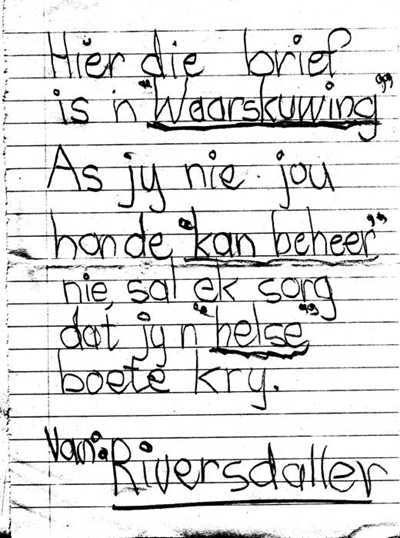 Hier die brief
is 'n "Waarskuwing"
As jy nie jou
honde, "kan beheer"
nie, sal ek sorg
dat jy 'n "helse"
boete kry.
Van: Riversdaller